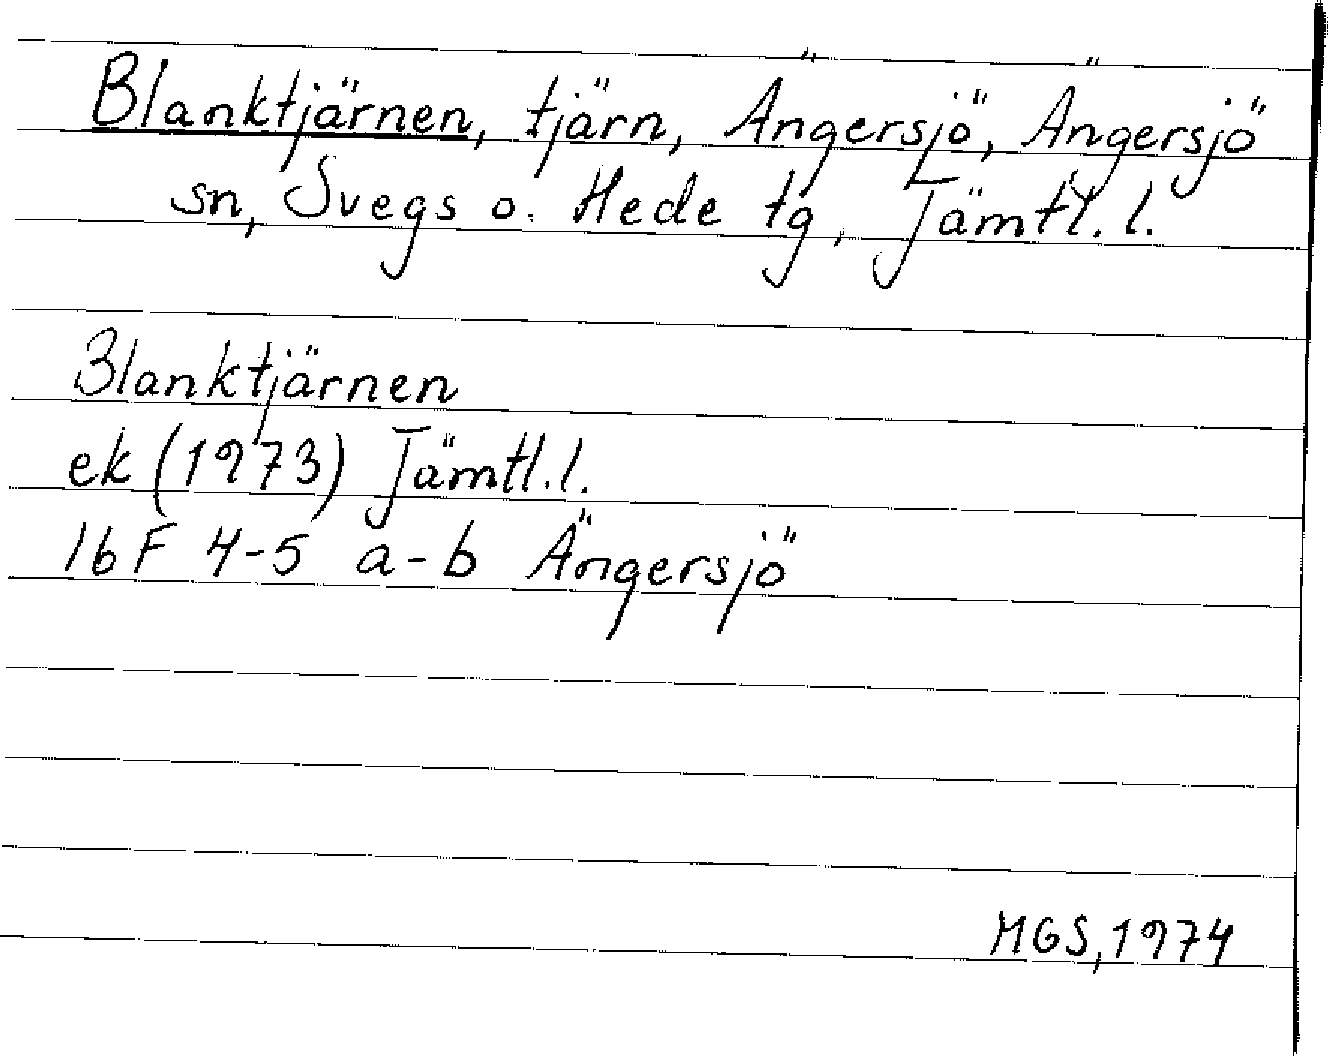 Blanktjärnen, tjärn, Ängersjö, Ängersjö
sn, Svegs o. Hede tg, Jämtl. l.
Blanktjärnen
ek (1973) Jämtl. l.
16F 4-5 a-b Ängersjö
MGS, 1974